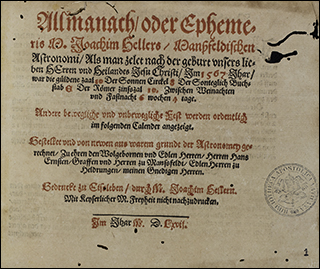 Allmanach / oder Epheme-
ris M. Joachim Hellers / Mansfeldischen
Astronomi / Als man zelet nach der geburt unsers lie-
ben HErren und Heilandes Jesu Christi / Im 1567 Jhar /
war die güldene zaal 10 Der Sonnen Circkel 8 Der Sonteglich Buch-
stab E Der Römer zinszal 10. Zwischen Weinachten
und Fastnacht 6 wochen 4 tage.
Andere bewegliche und unbewegliche Fest werden ordentlich
im folgenden Calender angezeigt.
Gestellet und von newen aus warem grunde der Astronomey ge-
rechnet / Zu ehren den Wolgebornen und Edlen Herren / Herren Hans
Ernsten / Graffen und Herren zu Mansfeldt / Edlen Herren zu
Heldrungen / meinen Gnedigen Herren.
Gedruckt zu Eisleben / durch M. Joachim Hellern.
Mit Keyserlicher M. Freyheit nicht nachzudrucken.
Im Jhar M. D. Lxvii.
1